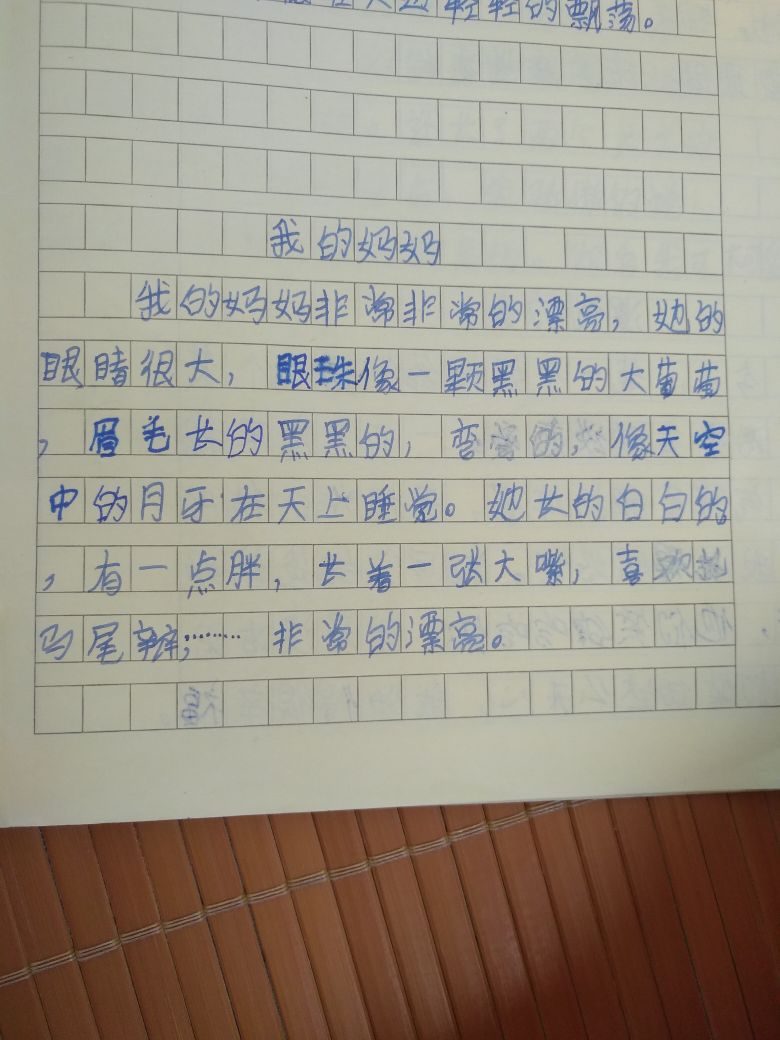 轻轻的飘荡。
我的妈妈
我的妈妈非常非常的漂亮，她的
眼睛很大，眼珠像一颗黑黑的大葡萄
，眉毛长的黑黑的，弯弯的，像天空
中的月牙在天上睡觉。她长的白白的
，有一点胖，长着一张大嘴，喜欢扎
马尾辫，……非常的漂亮。